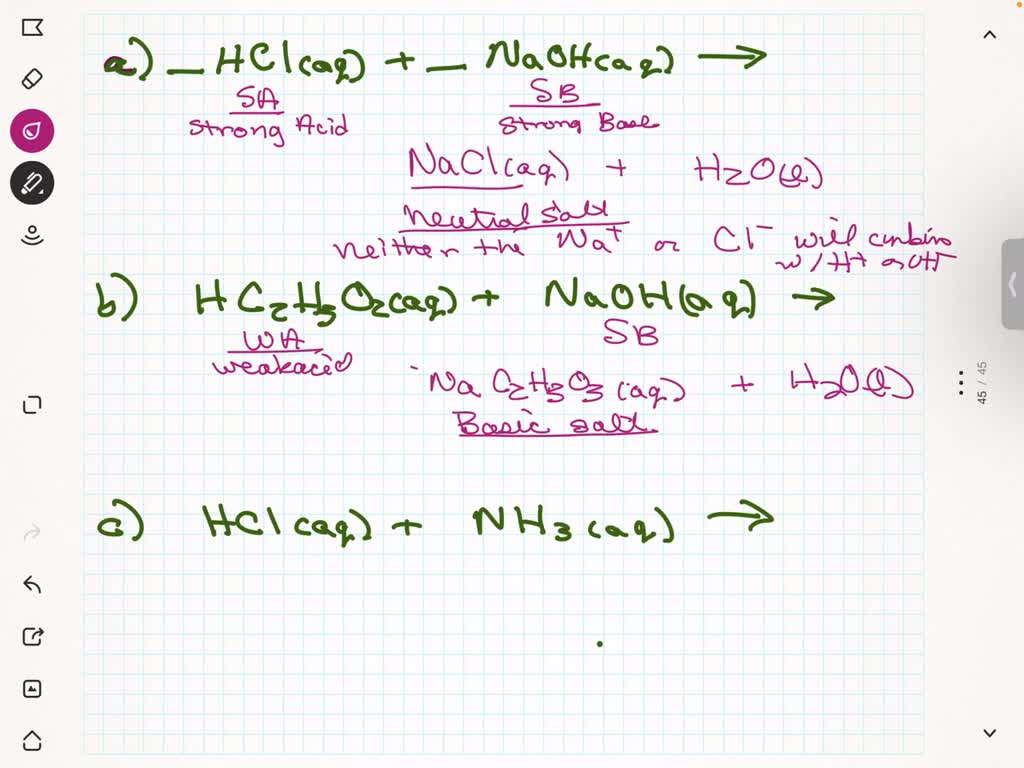 a) _ HCl(aq) + _ NaOH(aq) →
SA SB
strong Acid strong Base
NaCl(aq) + H2O(l)
neutral salt
neither the Na+ or Cl- will combine
w/ H+ or OH-
b) HC2H3O2(aq) + NaOH(aq) →
WA SB
weak acid
NaC2H3O3(aq) + H2O(l)
Basic salt
c) HCl(aq) + NH3(aq) →
45 / 45